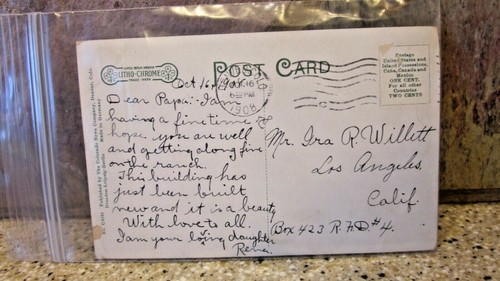 LITHO-CHROME
TRADE MARK
POST CARD
Postage
United States and
Island Possessions,
Cuba, Canada and
Mexico
ONE CENT.
For all other
Countries
TWO CENTS
OCT 16
1908
Published by The Colorado News Company, Denver, Colo.
Dresden-Leipzig-Berlin
Made in Germany
Oct 16, 1908
Dear Papa:- I am
having a fine time &
hope you are well
and getting along fine
on the ranch.
This building has
just been built
new and it is a beauty
With love to all.
I am your loving daughter
Rena.
Mr. Ira R. Willett
Los Angeles,
Calif.
Box 423 R.F.D. #4.